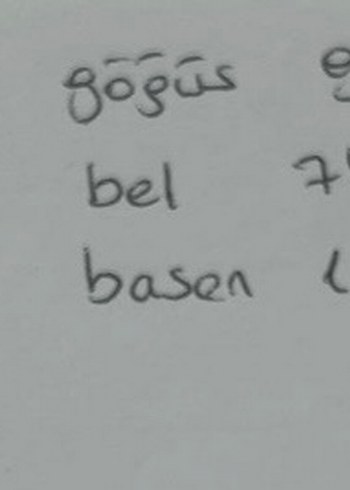 göğüs
bel 7
basen